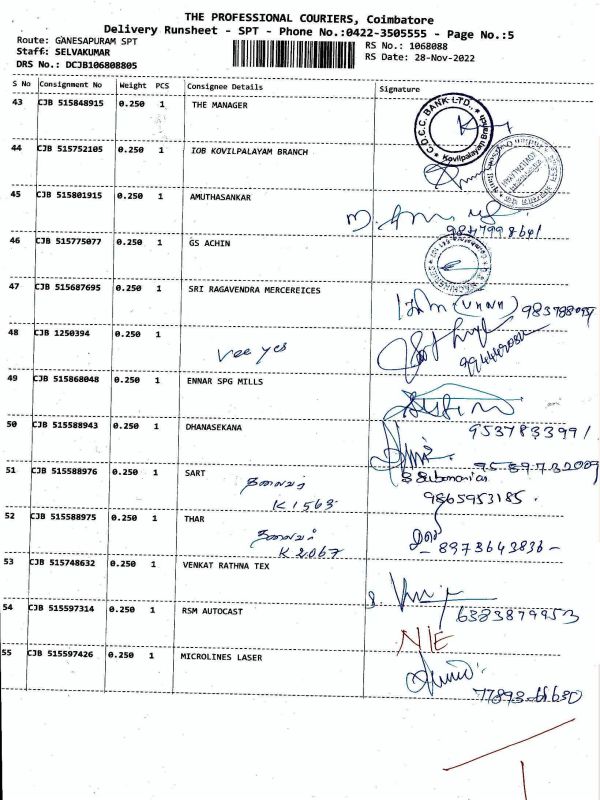 THE PROFESSIONAL COURIERS, Coimbatore
Delivery Runsheet - SPT - Phone No.:0422-3505555 - Page No.:5
Route: GANESAPURAM SPT
RS No.: 1068088
Staff: SELVAKUMAR
RS Date: 28-Nov-2022
DRS No.: DCJB106808805
S No Consignment No Weight PCS Consignee Details Signature
43 CJB 515848915 0.250 1 THE MANAGER
C.D.C.C. BANK LTD., Kovilpalayam Branch
44 CJB 515752105 0.250 1 IOB KOVILPALAYAM BRANCH
45 CJB 515801915 0.250 1 AMUTHASANKAR
9847998641
46 CJB 515775077 0.250 1 GS ACHIN
47 CJB 515687695 0.250 1 SRI RAGAVENDRA MERCEREICES
48 CJB 1250394 0.250 1
Vee yes
49 CJB 515868048 0.250 1 ENNAR SPG MILLS
9537833991
50 CJB 515588943 0.250 1 DHANASEKANA
51 CJB 515588976 0.250 1 SART
தலைவர்
K 1563
9865953185.
52 CJB 515588975 0.250 1 THAR
தலைவர்
K 2067
- 8973643836 -
53 CJB 515748632 0.250 1 VENKAT RATHNA TEX
6383879953
54 CJB 515597314 0.250 1 RSM AUTOCAST
N/E
55 CJB 515597426 0.250 1 MICROLINES LASER